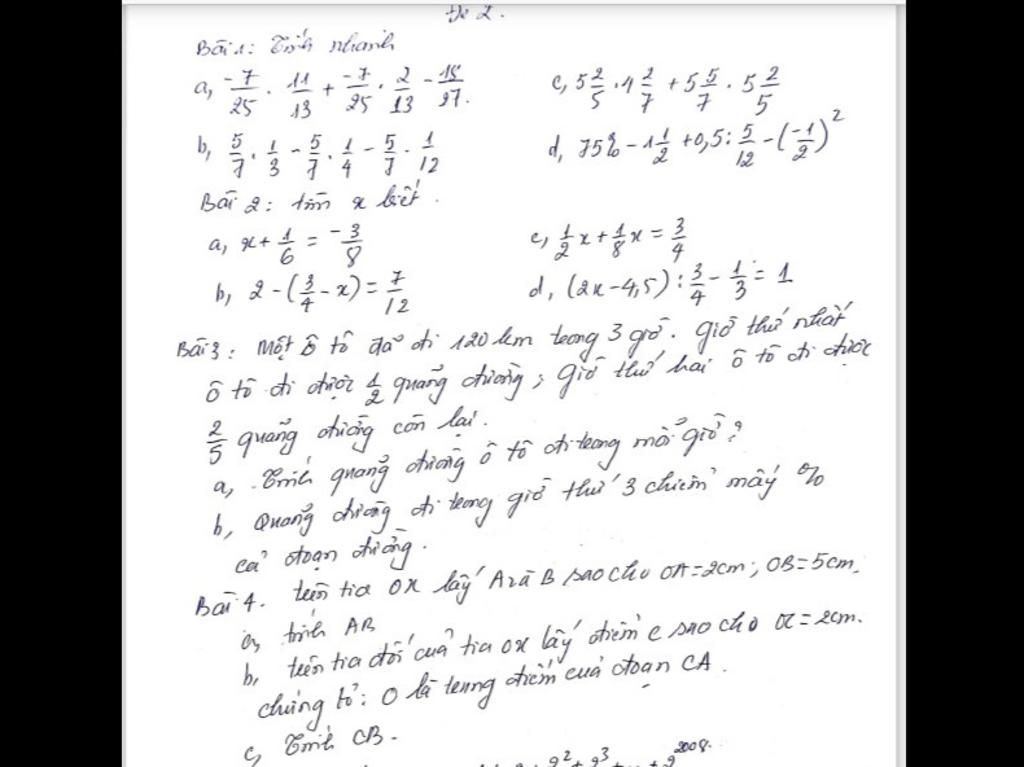 Đề 2.
Bài 1: Tính nhanh
a, -7/25 . 11/13 + -7/25 . 2/13 - 18/27. c, 5 2/5 . 4 2/7 + 5 5/7 . 5 2/5
b, 5/7 . 1/3 - 5/7 . 1/4 - 5/7 . 1/12 d, 75% - 1 1/2 + 0,5 : 5/12 - (-1/2)^2
Bài 2: tìm x biết.
a, x + 1/6 = -3/8 c, 1/2 x + 1/8 x = 3/4
b, 2 - (3/4 - x) = 7/12 d, (2x - 4,5) : 3/4 - 1/3 = 1
Bài 3: Một ô tô đã đi 120 km trong 3 giờ. Giờ thứ nhất
ô tô đi được 1/2 quãng đường; Giờ thứ hai ô tô đi được
2/5 quãng đường còn lại.
a, Tính quãng đường ô tô đi trong mỗi giờ?
b, Quãng đường đi trong giờ thứ 3 chiếm mấy %
cả đoạn đường.
Bài 4. trên tia OX lấy A và B sao cho OA = 2cm; OB = 5cm.
a, tính AB
b, trên tia đối của tia OX lấy điểm C sao cho OC = 2cm.
chứng tỏ: O là trung điểm của đoạn CA.
c, Tính CB.
2^2 + 2^3 + ... + 2^2008.